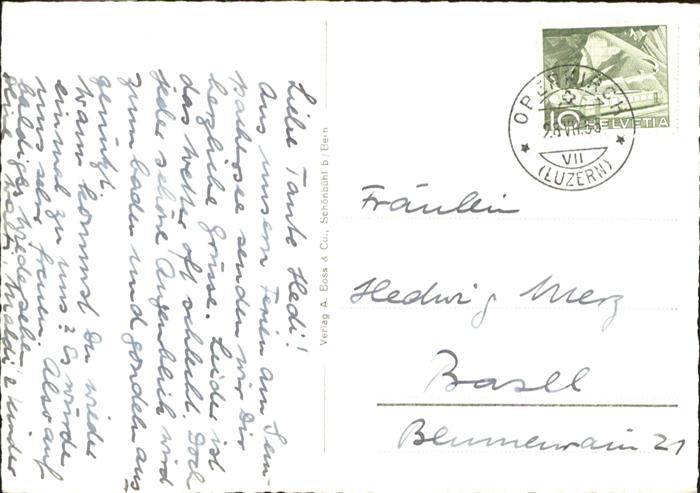 Liebe Tante Hedi!
Aus unsern Ferien am Sem-
pachersee senden wir Dir
herzliche Grüsse. Leider ist
das Wetter oft schlecht. Doch
jeder schöne Augenblick wird
zum baden und gondeln aus-
genützt.
Wann kommst Du wieder
einmal zu uns? Es würde
uns sehr freuen. Also auf
baldiges Wiedersehen
Kinder
Verlag A. Boss & Co., Schönbühl b/Bern
HELVETIA
10
OBERKIRCH
VII
(LUZERN)
Fräulein
Hedwig Merz
Basel
Blumenrain 21